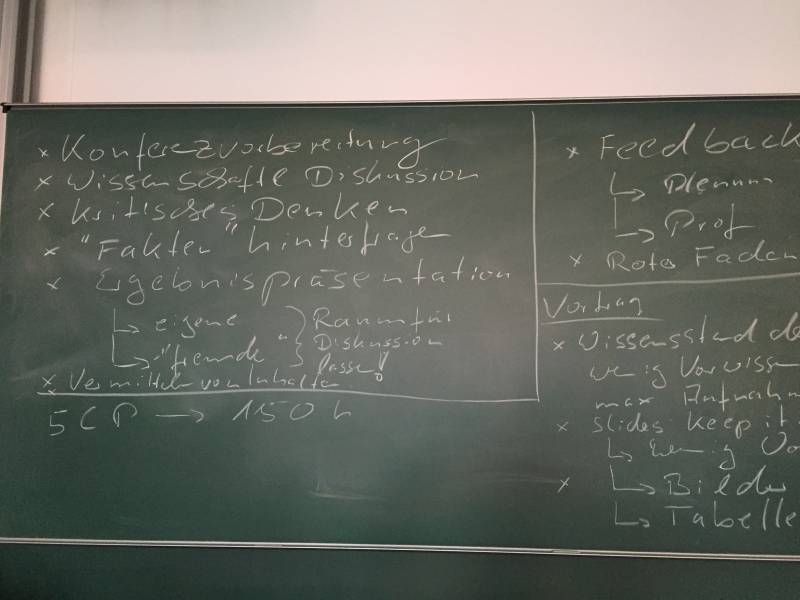 × Konferezvorbereitung
× Wissenschaftl Diskussion
× kritisches Denken
× "Fakten" hinterfrage
× Ergebnispräsentation
↳ eigene
↳ "fremde"
} Raum für
Diskussion
lassen!
× Vermitteln von Inhalten
5 CP → 150 h
× Feedback
↳ Plenum
↳ Prof
× Roter Faden
Vortrag
× Wissensstand de
wenig Vorwisse
max Aufnahm
× Slides: keep it
↳ wenig
× ↳ Bilder
↳ Tabelle